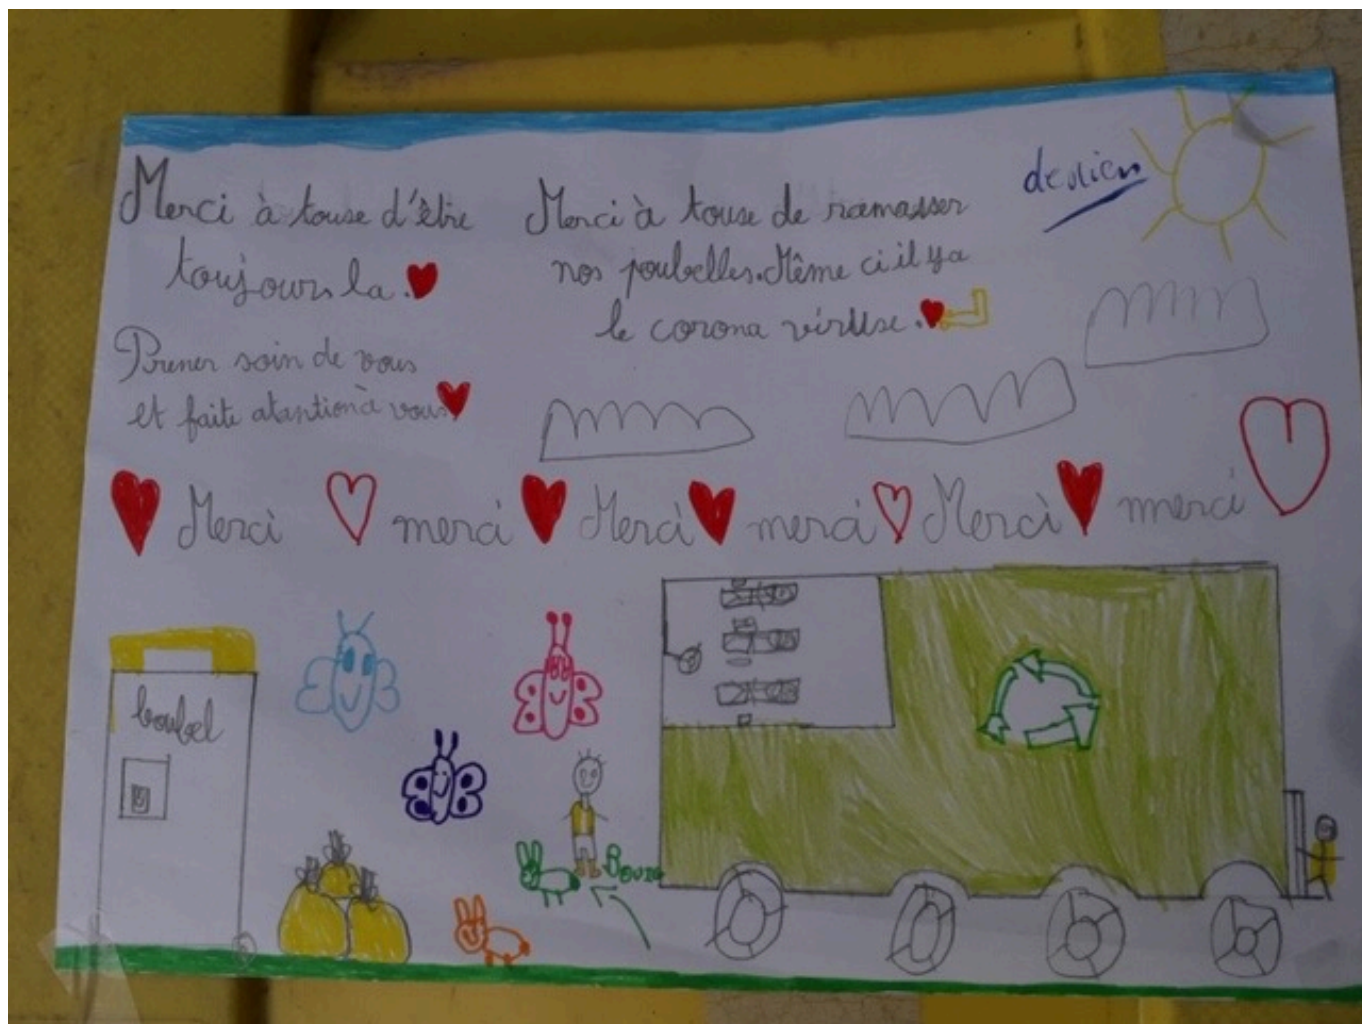 Merci à touse d'être
toujours la.
Prener soin de vous
et faite atantion à vous
Merci à touse de ramasser
nos poubelles. Même ci il y a
le corona viruse.
Merci merci Merci merci Merci merci
boubel